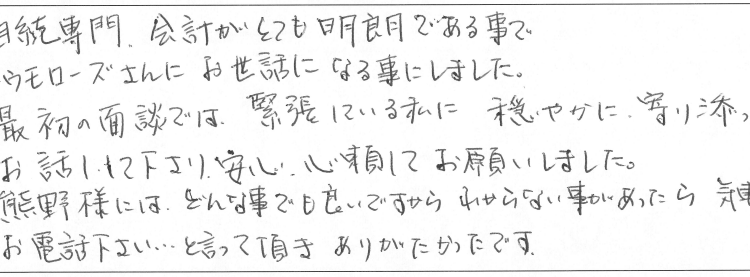 相続専門、会計がとても明朗である事で
ウモローズさんにお世話になる事にしました。
最初の面談では、緊張している私に 穏やかに、寄り添っ
お話して下さり、安心、心頼してお願いしました。
熊野様には、どんな事でも良いですから わからない事があったら 気軽
お電話下さい…と言って頂き ありがたかったです。